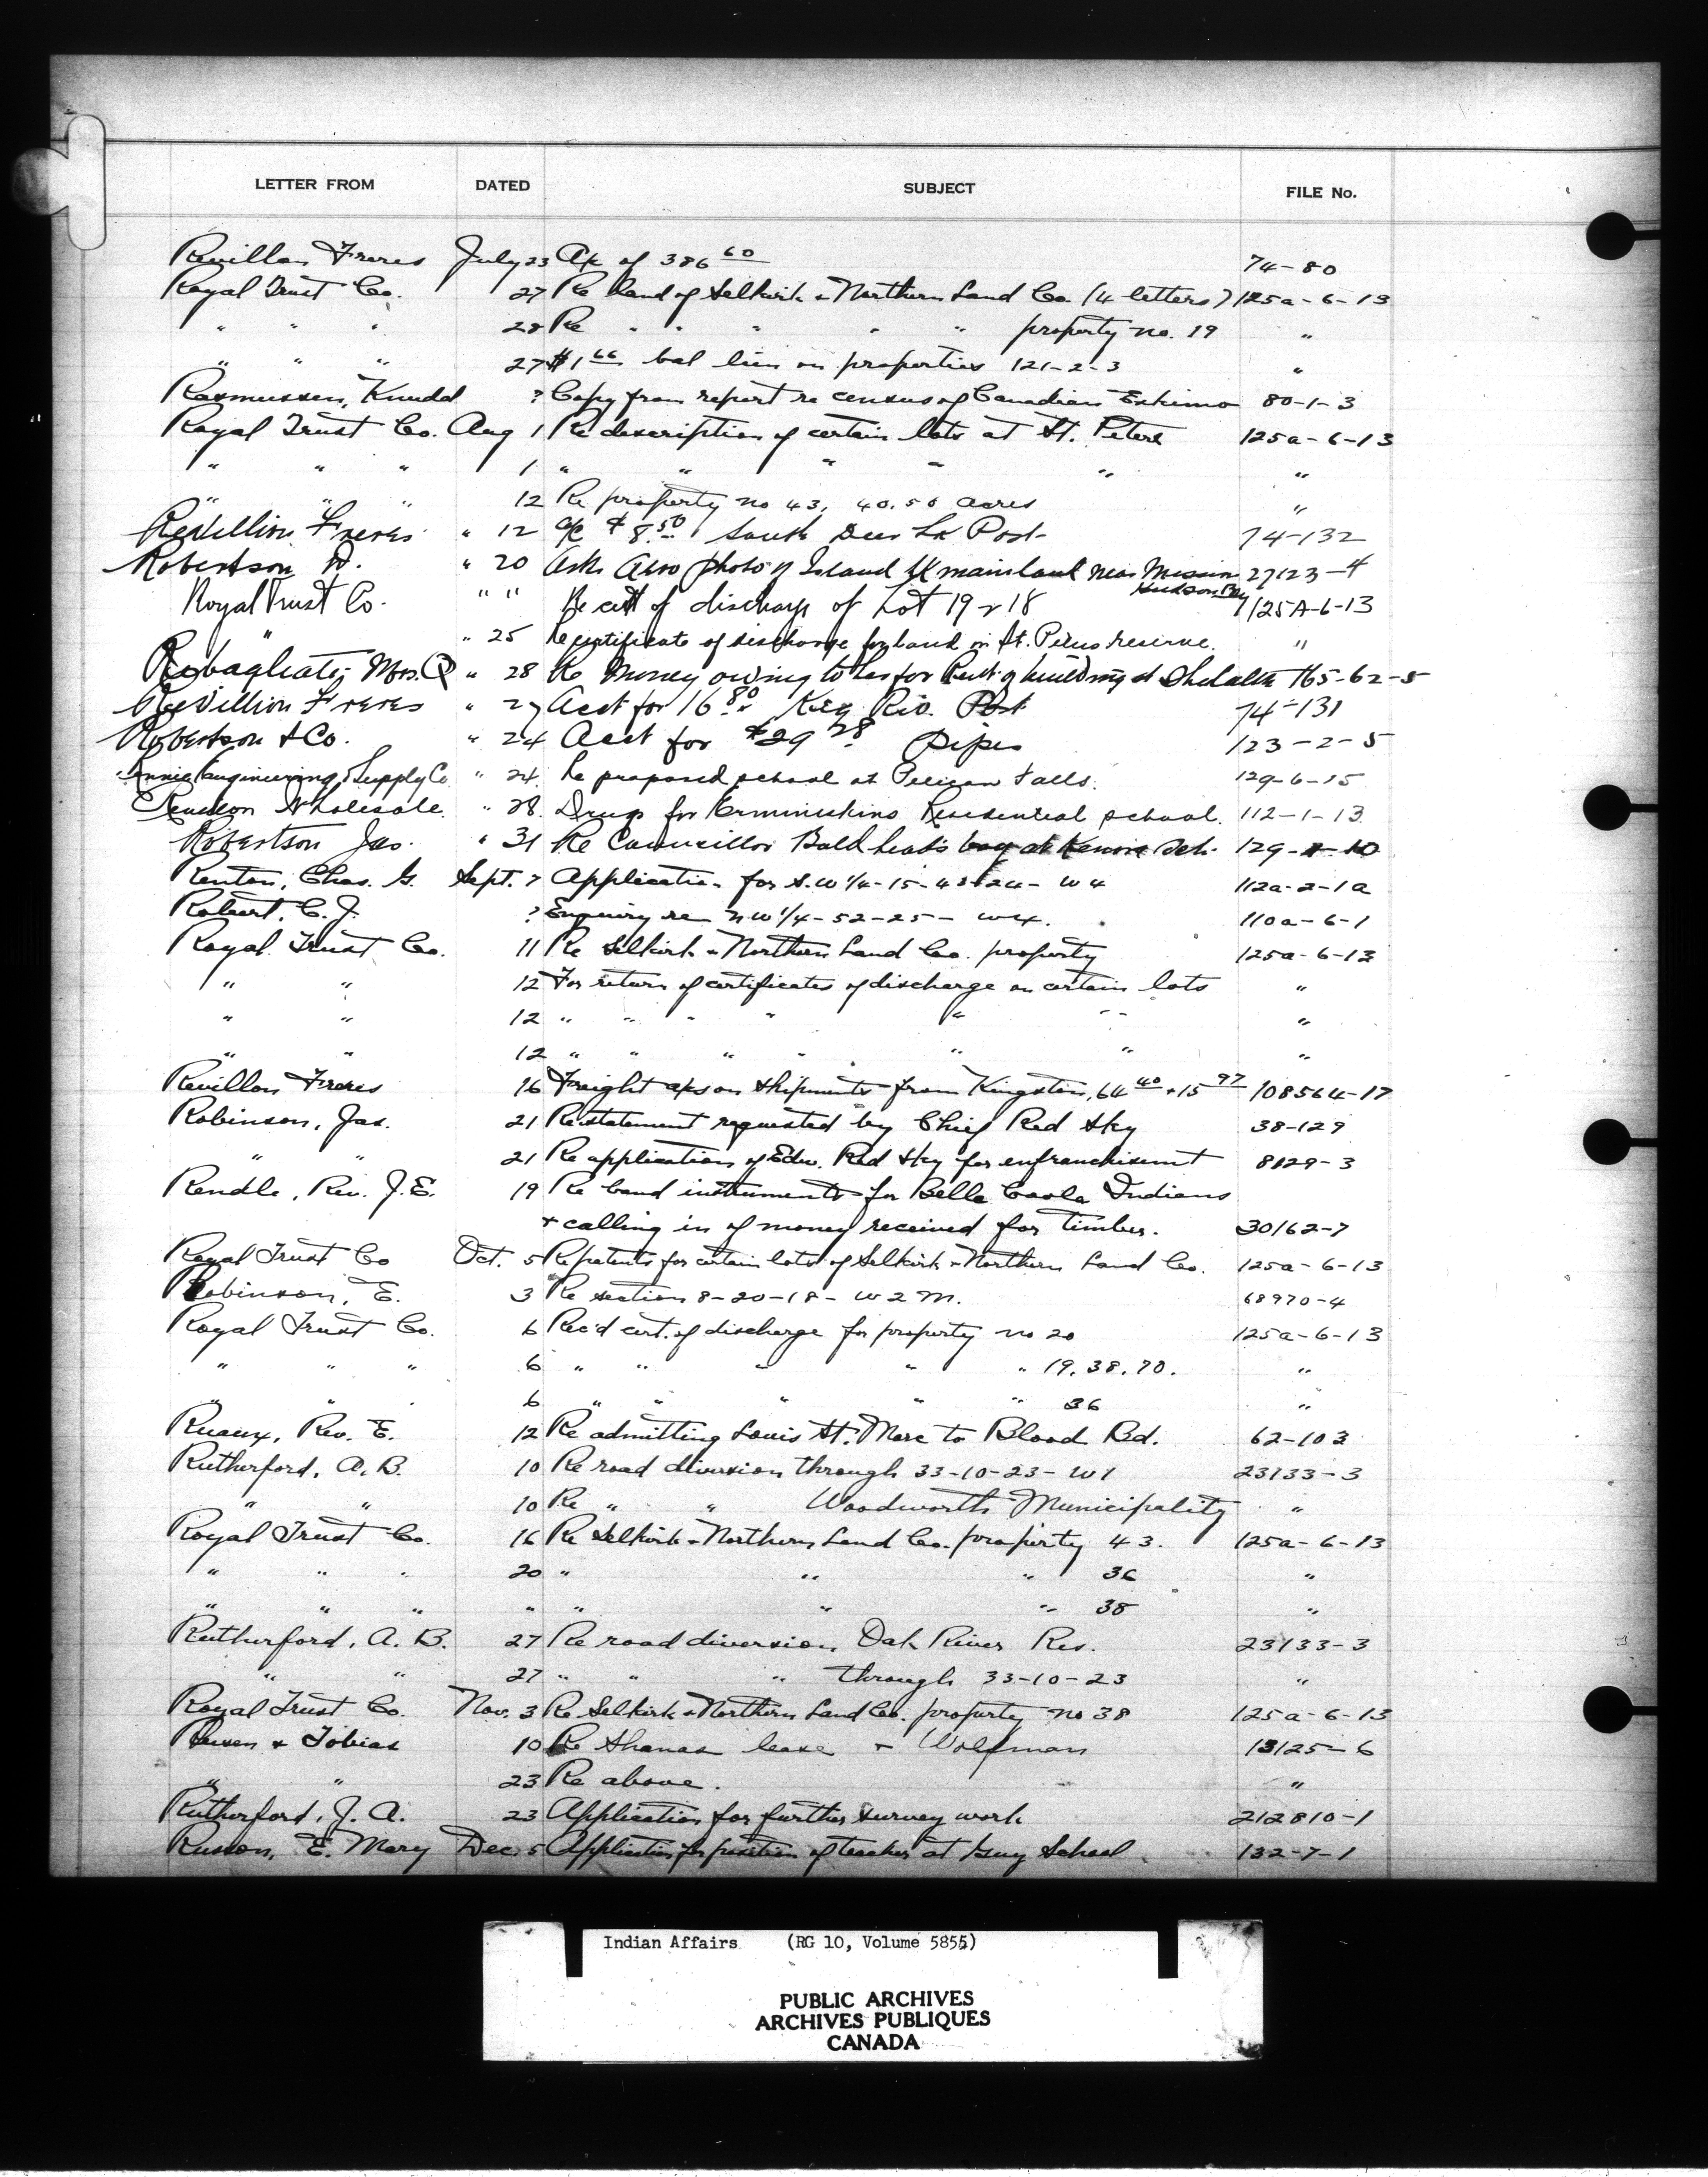 LETTER FROM DATED SUBJECT FILE No.
Revillon Freres July 23 A/c of 386 60 74-80
Royal Trust Co. 27 Re land of Selkirk & Northern Land Co. (4 letters) 125a-6-13
" " " 28 Re " " " " " property no. 19 "
" " " 27 $1 66 bal lien on properties 121-2-3 "
Rasmussen, Knudd ? Copy from report re census of Canadian Eskimo 80-1-3
Royal Trust Co. Aug 1 Re description of certain lots at St. Peters 125a-6-13
" " " 1 " " " " " "
" " " 12 Re property no 43, 40.50 acres "
Revillion Freres " 12 a/c $8.50 South Deer Lk Post 74-132
Robertson D. " 20 Asks aero photo of Island & mainland near Mission 27123-4
Hudson Bay
Royal Trust Co. " " Re cert of discharge of Lot 19 & 18 125A-6-13
" " 25 Re certificate of discharge for land in St. Peters reserve. "
Robagliati, Mrs. Q " 28 Re Money owing to her for Rent of building at 165-62-5
Revillion Freres " 27 Acct for 16.80 Riv. Post 74-131
Robertson & Co. " 24 Acct for $29 28 Pipes 123-2-5
Engineering & Supply Co. " 24. Re proposed school at Pelican Falls. 129-6-15
Wholesale. " 28. Drugs for Ermineskins Residential school. 112-1-13
Robertson Jas. " 31 Re Councillor Bald head's boy at Kenora Sch. 129- -10
Renton, Chas. G. Sept. 7 Application for S.W 1/4-15-43-24-W4 112a-2-1a
Robert, C. J. ? Enquiry re NW 1/4-52-25-W4. 110a-6-1
Royal Trust Co. 11 Re Selkirk & Northern Land Co. property 125a-6-13
" " 12 For return of certificates of discharge on certain lots "
" " 12 " " " " " " "
" " 12 " " " " " " "
Revillon Freres 16 Freight a/cs on shipments from Kingston, 64 40 + 15 97 108564-17
Robinson, Jas. 21 Re statement requested by Chief Red Sky 38-129
" " 21 Re application of Edw. Red Sky for enfranchisement 8129-3
Rendle, Rev. J. E. 19 Re band instruments for Bella Coola Indians
+ calling in of money received for timber. 30162-7
Royal Trust Co Oct. 5 Re patents for certain lots of Selkirk & Northern Land Co. 125a-6-13
Robinson, E. 3 Re section 8-20-18-W2M. 68970-4
Royal Trust Co. 6 Rec'd cert. of discharge for property no 20 125a-6-13
" " " 6 " " " " " 19, 38, 70. "
" " 6 " " " " " 36 "
Ruaux, Rev. E. 12 Re admitting Louis St. Marc to Blood Bd. 62-103
Rutherford, A. B. 10 Re road diversion through 33-10-23-W1 23133-3
" " 10 Re " " Woodworth Municipality "
Royal Trust Co. 16 Re Selkirk & Northern Land Co. property 43. 125a-6-13
" " " 20 " " " 36 "
" " " " " " " 38 "
Rutherford, A. B. 27 Re road diversion Oak River Res. 23133-3
" " 27 " " " through 33-10-23 "
Royal Trust Co. Nov. 3 Re Selkirk & Northern Land Co. property no 38 125a-6-13
& Tobias 10 Re lease & Wolfman 13125-6
" " 23 Re above. "
Rutherford, J. A. 23 Application for further survey work 212810-1
Russon, E. Mary Dec. 5 Application for position of teacher at Guy School 132-7-1
Indian Affairs (RG 10, Volume 5855)
PUBLIC ARCHIVES
ARCHIVES PUBLIQUES
CANADA